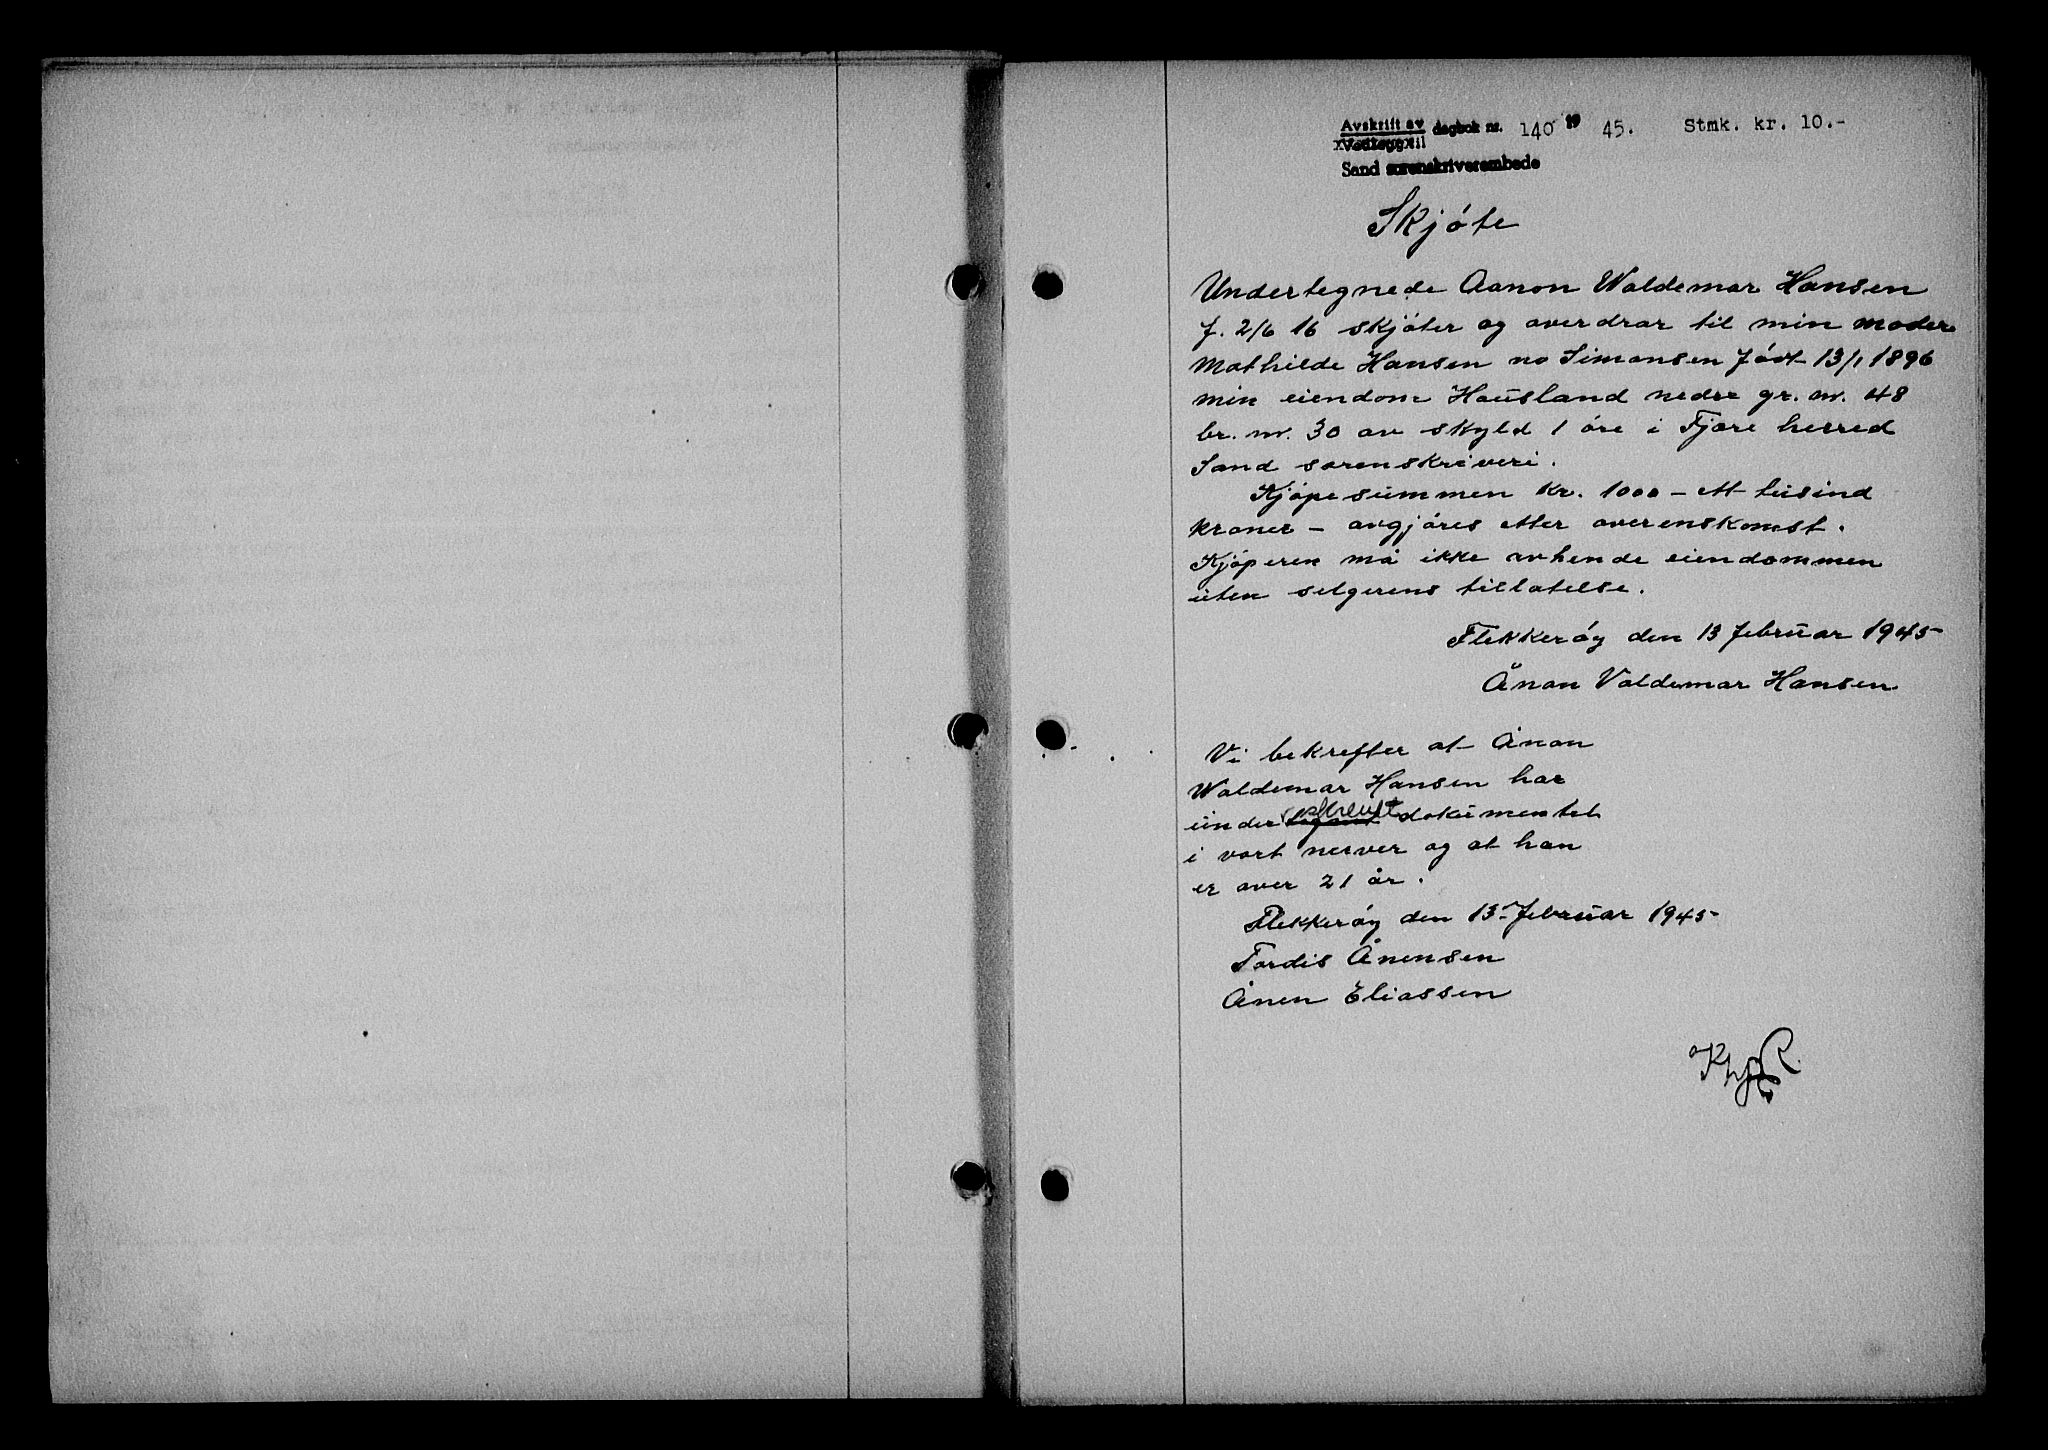 Avskrift av dagbok nr. 140 1945. Stmk. kr. 10.-
Vedlegg til
Sand sorenskriverembede
Skjóte
Undertegnede Aanon Waldemar Hansen
f. 2/6 16 skjóter og overdrar til min moder
Mathilde Hansen no Simonsen fódt 13/1 1896
min eiendom Hausland nedre gr. nr. 48
br. nr. 30 av skyld 1 óre i Fjære herred
Sand sorenskriveri.
Kjópesummen kr. 1000 - ett tusind
kroner - avgjóres etter overenskomst.
Kjóperen må ikke avhende eiendommen
uten selgerens tillatelse.
Flekkeróy den 13 februar 1945
Ånon Valdemar Hansen
Vi bekrefter at Ånon
Waldemar Hansen har
under skrevet dokumentet
i vort nerver og at han
er over 21 år.
Flekkeróy den 13 februar 1945
Tordis Ånensen
Ånen Eliassen